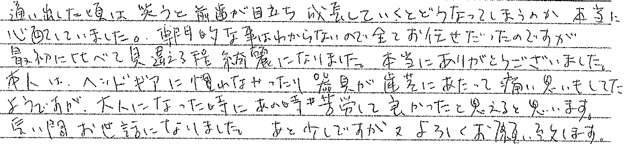 通い出した頃は 笑うと前歯が目立ち 成長していくとどうなってしまうのか 本当に
心配していました。専門的な事はわからないので全てお任せだったのですが
最初に比べて見違える程 綺麗になりました。本当にありがとうございました。
本人は、ヘッドギアに慣れなかったり 器具が歯茎にあたって痛い思いもしてた
ようですが、大人になった時に あの時 苦労して良かったと思えると思います。
長い間 お世話になりました。 あと少しですが よろしくお願い致します。